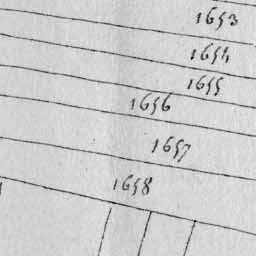 1653
1654
1655
1656
1657
1658